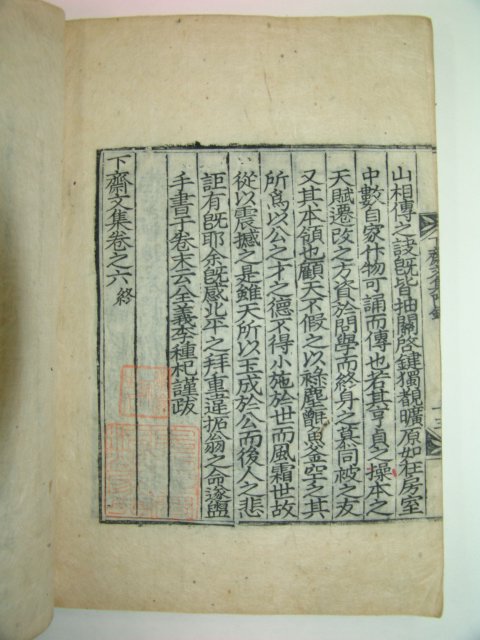 山相傳之訣旣皆抽關啓鍵獨覩曠原如在房室
中數自家什物可誦而傳也若其亨貞之操本之
天賦遷改之方資於問學而終身之慕同被之友
又其本領也顧天不假之以祿塵甑魚釜空乏其
所爲以公之才之德不得小施於世而風霜世故
從以震撼之是雖天所以玉成於公而後人之悲
詎有旣耶余旣感北平之拜重違拓翁之命遂盥
手書于卷末云全義李種杞謹跋
下齋文集卷之六終